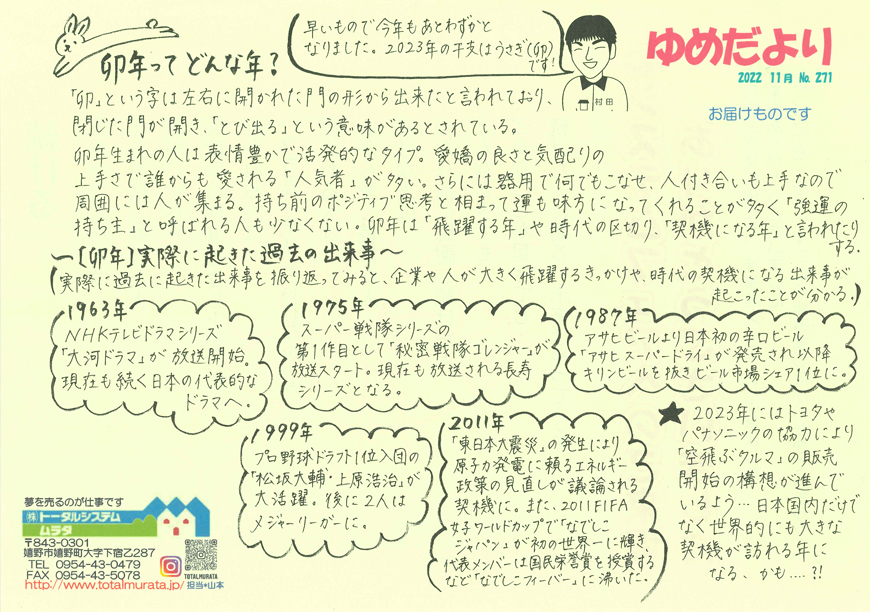 早いもので今年もあとわずかと
なりました。2023年の干支はうさぎ(卯)
です!
村田
ゆめだより
2022 11月 No. 271
お届けものです
卯年ってどんな年?
「卯」という字は左右に開かれた門の形から出来たと言われており、
閉じた門が開き、「とび出る」という意味があるとされている。
卯年生まれの人は表情豊かで活発的なタイプ。愛嬌の良さと気配りの
上手さで誰からも愛される「人気者」が多い。さらには器用で何でもこなせ、人付き合いも上手なので
周囲には人が集まる。持ち前のポジティブ思考と相まって運も味方になってくれることが多く「強運の
持ち主」と呼ばれる人も少なくない。卯年は「飛躍する年」や時代の区切り、「契機になる年」と言われたり
する。
〜[卯年]実際に起きた過去の出来事〜
(実際に過去に起きた出来事を振り返ってみると、企業や人が大きく飛躍するきっかけや、時代の契機になる出来事が
起こったことが分かる。)
1963年
NHKテレビドラマシリーズ
「大河ドラマ」が放送開始。
現在も続く日本の代表的な
ドラマへ。
1975年
スーパー戦隊シリーズの
第1作目として「秘密戦隊ゴレンジャー」が
放送スタート。現在も放送される長寿
シリーズとなる。
1987年
アサヒビールより日本初の辛口ビール
「アサヒスーパードライ」が発売され以降
キリンビールを抜きビール市場シェア1位に。
1999年
プロ野球ドラフト1位入団の
「松坂大輔・上原浩治」が
大活躍。後に2人は
メジャーリーガーに。
2011年
「東日本大震災」の発生により
原子力発電に頼るエネルギー
政策の見直しが議論される
契機に。また、2011FIFA
女子ワールドカップで「なでしこ
ジャパン」が初の世界一に輝き、
代表メンバーは国民栄誉賞を授賞する
など「なでしこフィーバー」に沸いた。
★ 2023年にはトヨタや
パナソニックの協力により
「空飛ぶクルマ」の販売
開始の構想が進んで
いるよう…日本国内だけで
なく世界的にも大きな
契機が訪れる年に
なる、かも….?!
夢を売るのが仕事です
㈱トータルシステム
ムラタ
〒843-0301
嬉野市嬉野町大字下宿乙287
TEL 0954-43-0479
FAX 0954-43-5078
http://www.totalmurata.jp/
TOTALMURATA
担当+山本